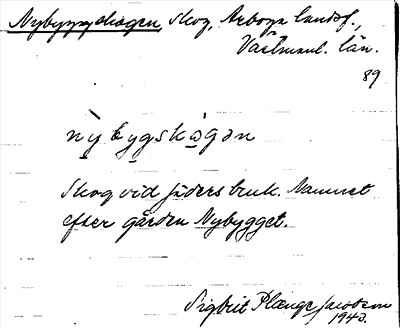 Nybyggsskogen, skog, Arboga landsf.,
Västmanl. län.
89
ny̱ bygskògən
Skog vid Jäders bruk. Namnet
efter gården Nybygget.
Sigbrit Plænge Jacobson
1943.